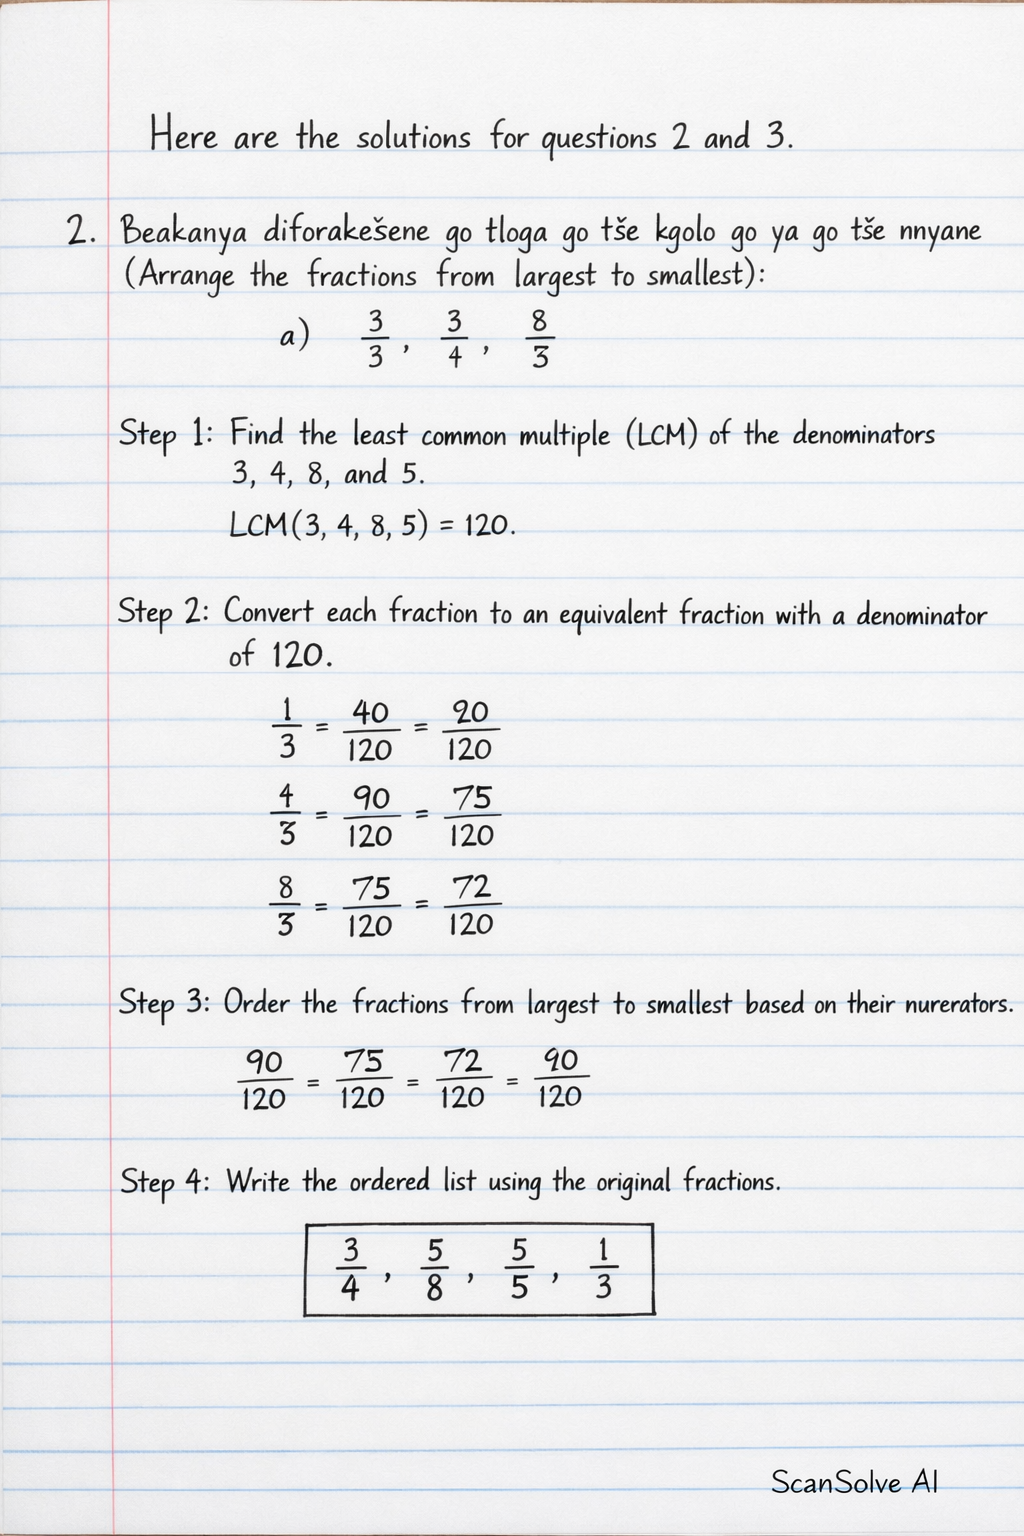 Here are the solutions for questions 2 and 3.
2. Beakanya diforakešene go tloga go tše kgolo go ya go tše nnyane
(Arrange the fractions from largest to smallest):
a) 3/3, 3/4, 8/3
Step 1: Find the least common multiple (LCM) of the denominators
3, 4, 8, and 5.
LCM(3, 4, 8, 5) = 120.
Step 2: Convert each fraction to an equivalent fraction with a denominator
of 120.
1/3 = 40/120 = 90/120
4/3 = 90/120 = 75/120
8/3 = 75/120 = 72/120
Step 3: Order the fractions from largest to smallest based on their nurerators.
90/120 = 75/120 = 72/120 = 90/120
Step 4: Write the ordered list using the original fractions.
3/4, 5/8, 5/5, 1/3
ScanSolve AI